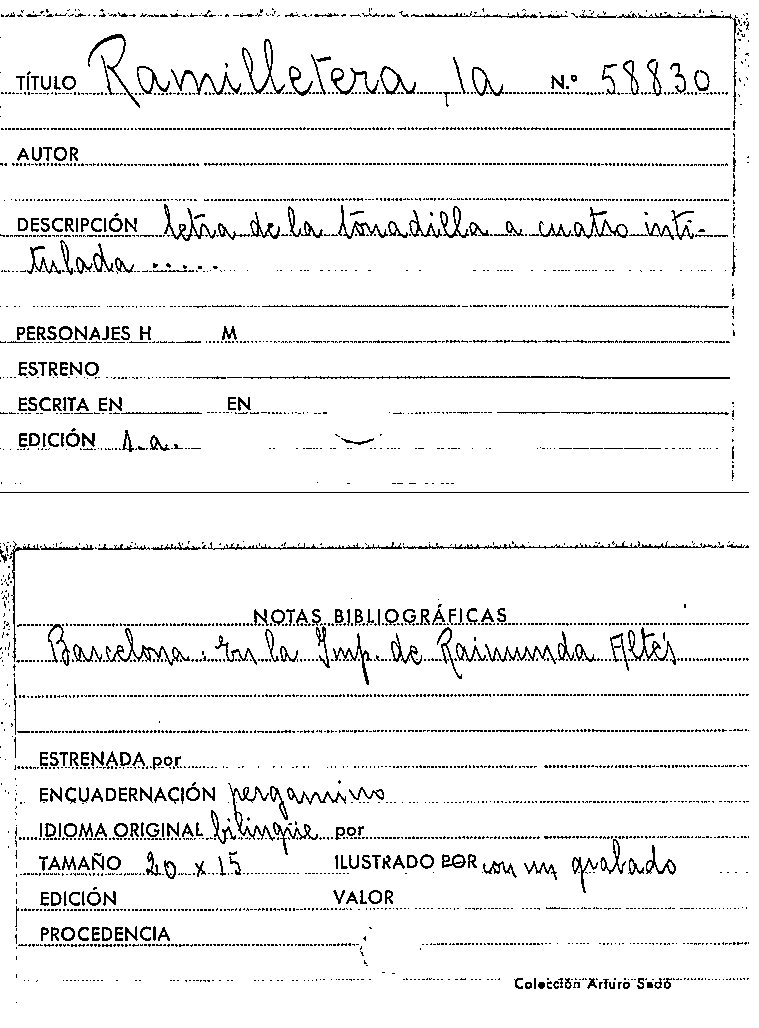 TÍTULO Ramilletera, la N.º 58830
AUTOR
DESCRIPCIÓN letra de la tonadilla a cuatro inti-
tulada .....
PERSONAJES H M
ESTRENO
ESCRITA EN EN
EDICIÓN s.a.
NOTAS BIBLIOGRÁFICAS
Barcelona. En la Imp. de Raimunda Altés
ESTRENADA por
ENCUADERNACIÓN pergamino
IDIOMA ORIGINAL bilingüe por
TAMAÑO 20 x 15 ILUSTRADO POR con un grabado
EDICIÓN VALOR
PROCEDENCIA
Colección Arturo Sedó